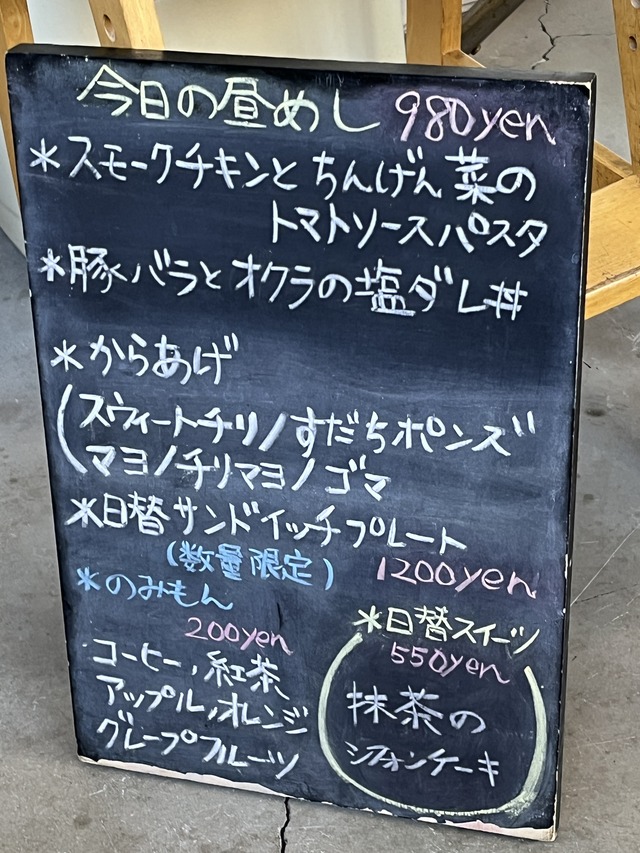 今日の昼めし 980yen
*スモークチキンとちんげん菜の
トマトソースパスタ
*豚バラとオクラの塩ダレ丼
*からあげ
(スウィートチリ/すだちポンズ
マヨ/チリマヨ/ゴマ
*日替サンドイッチプレート
(数量限定) 1200yen
*のみもん
200yen
コーヒー,紅茶
アップル,オレンジ
グレープフルーツ
*日替スイーツ
550yen
抹茶の
シフォンケーキ